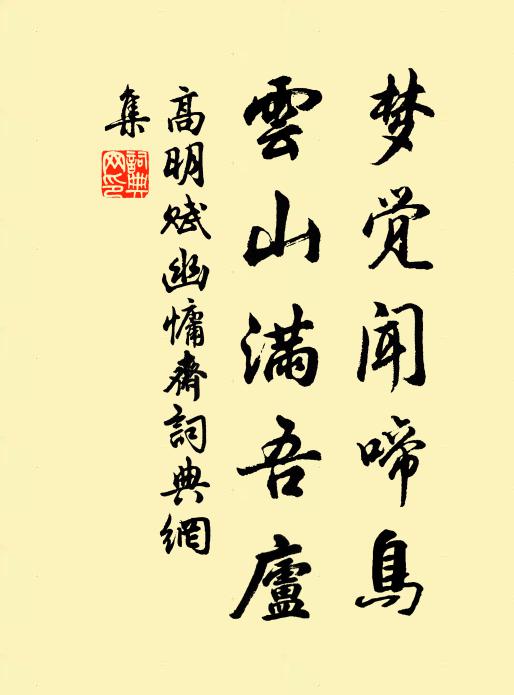 梦觉闻啼鸟
雲山满吾廬
高明赋幽慵齋詞典網
集
詞典網印